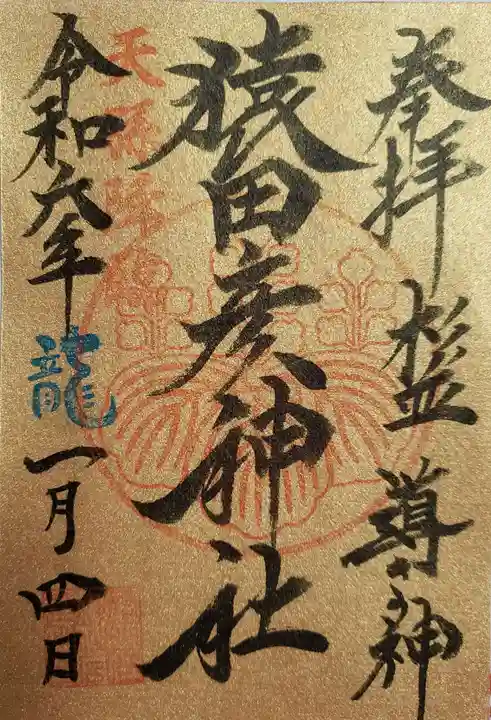 奉拝 杉並 導きの神
猿田彦神社
天孫降臨
令和六年 龍 一月四日